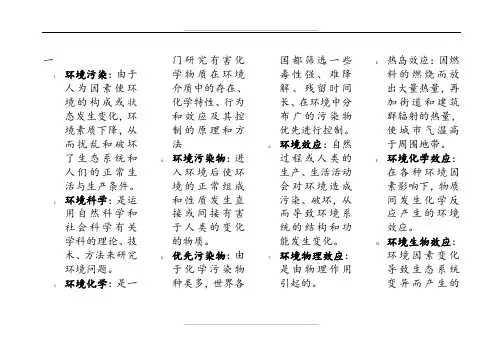 一
1 环境污染：由于
人为因素使环
境的构成或状
态发生变化，环
境素质下降，从
而扰乱和破坏
了生态系统和
人们的正常生
活与生产条件。
2 环境科学：是运
用自然科学和
社会科学有关
学科的理论、技
术、方法来研究
环境问题。
3 环境化学：是一
门研究有害化
学物质在环境
介质中的存在、
化学特性、行为
和效应及其控
制的原理和方
法
4 环境污染物：进
入环境后使环
境的正常组成
和性质发生直
接或间接有害
于人类的变化
的物质。
5 优先污染物：由
于化学污染物
种类多，世界各
国都筛选一些
毒性强、难降
解、残留时间
长、在环境中分
布广的污染物
优先进行控制。
6 环境效应：自然
过程或人类的
生产、生活活动
会对环境造成
污染、破坏，从
而导致环境系
统的结构和功
能发生变化。
7 环境物理效应：
是由物理作用
引起的。
8 热岛效应：因燃
料的燃烧而放
出大量热量，再
加街道和建筑
群辐射的热量，
使城市气温高
于周围地带。
9 环境化学效应：
在各种环境因
素影响下，物质
间发生化学反
应产生的环境
效应。
10 环境生物效应：
环境因素变化
导致生态系统
变异而产生的